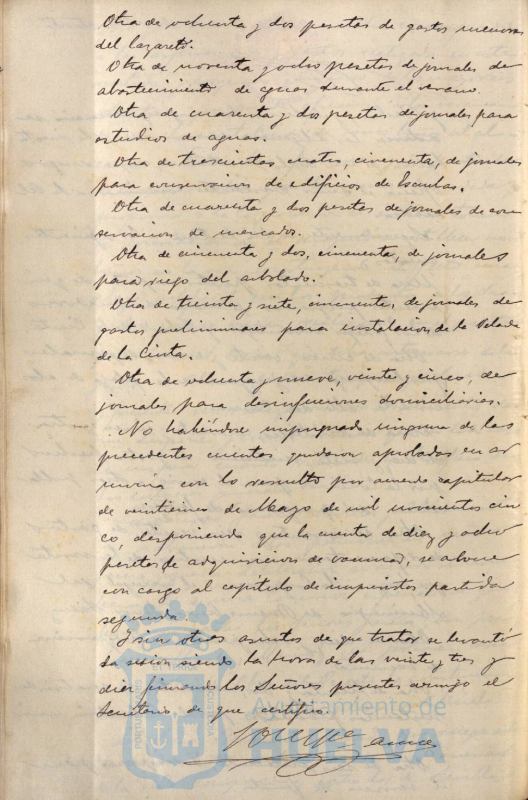 Otra de ochenta y dos pesetas de gastos menores
del lazareto.
Otra de noventa y ocho pesetas de jornales de
abastecimiento de aguas durante el verano.
Otra de cuarenta y dos pesetas de jornales para
estudios de aguas.
Otra de trescientas cuatro, cincuenta, de jornales
para conservacion de edificios de Escuelas.
Otra de cuarenta y dos pesetas de jornales de con
servacion de mercados.
Otra de cincuenta y dos, cincuenta, de jornales
para riego del arbolado.
Otra de treinta y siete, cincuenta, de jornales de
gastos preliminares para instalacion de la Velada
de la Cinta.
Otra de ochenta y nueve, veinte y cinco, de
jornales para desinfecciones domiciliarias.
No habiéndose impugnado ninguna de las
precedentes cuentas quedaron aprobadas en ar
monia con lo resuelto por acuerdo capitular
de veinticinco de Mayo de mil novecientos cin
co, disponiendo que la cuenta de diez y ocho
pesetas de adquisicion de vacunas, se abone
con cargo al capitulo de imprevistos partida
segunda.
Y sin otros asuntos de que tratar se levantó
la sesion siendo la hora de las veinte y tres y
diez firmando los Señores presentes conmigo el
Secretario, de que certifico.
Ayuntamiento de
HUELVA